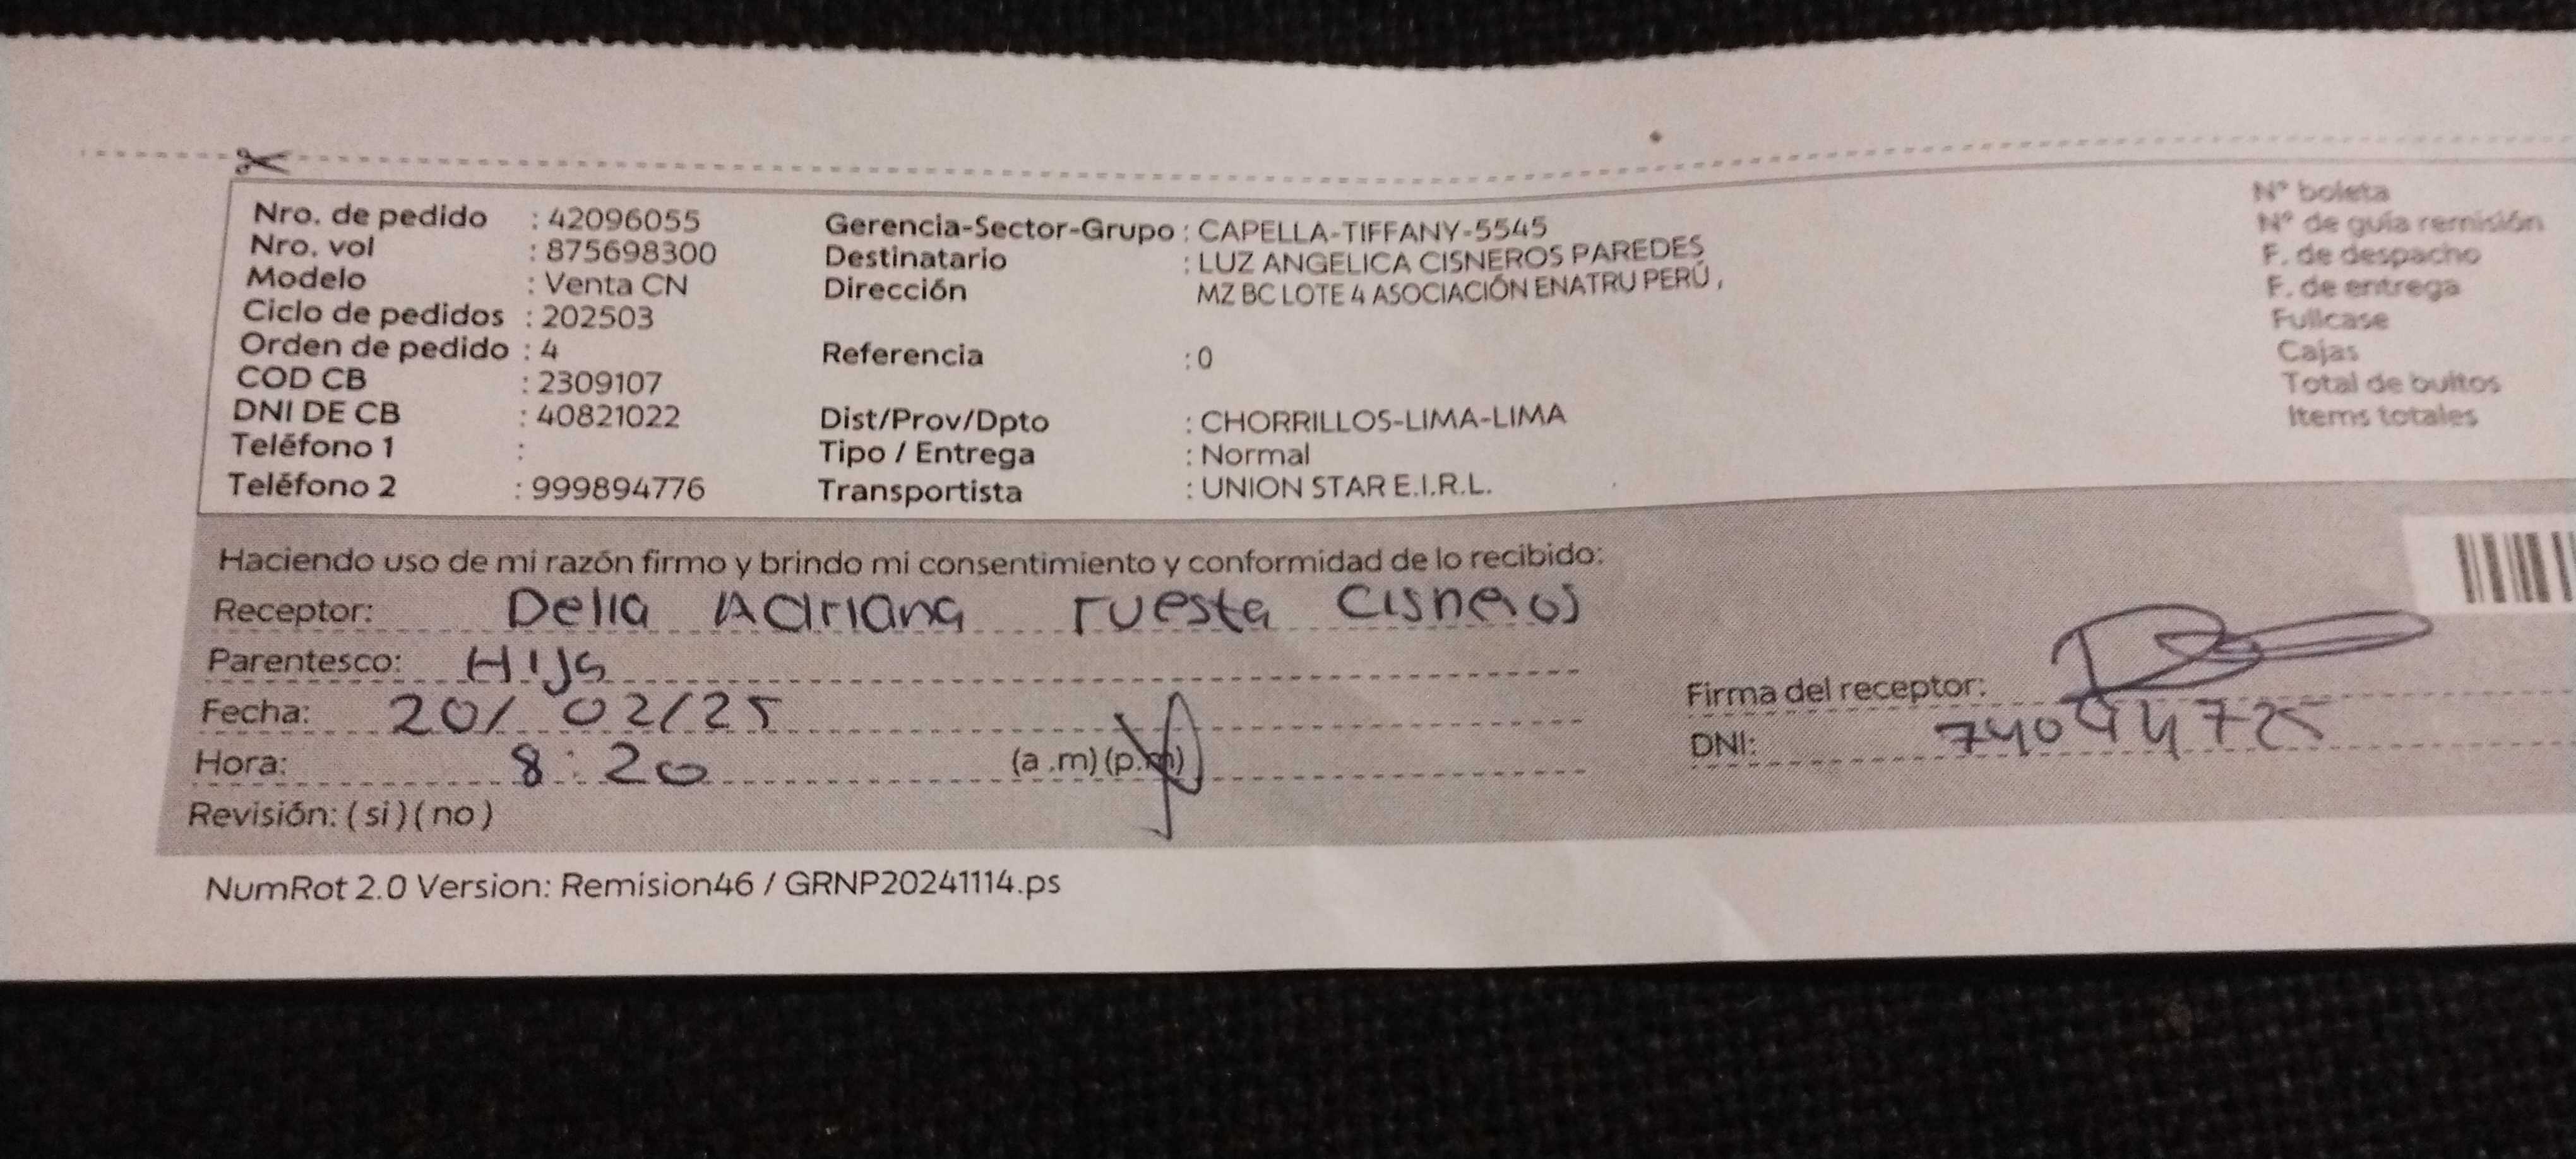 Nro. de pedido : 42096055
Nro. vol : 875698300
Modelo : Venta CN
Ciclo de pedidos : 202503
Orden de pedido : 4
COD CB : 2309107
DNI DE CB : 40821022
Teléfono 1 :
Teléfono 2 : 999894776
Gerencia-Sector-Grupo : CAPELLA-TIFFANY-5545
Destinatario : LUZ ANGELICA CISNEROS PAREDES
Dirección MZ BC LOTE 4 ASOCIACIÓN ENATRU PERÚ ,
Referencia : 0
Dist/Prov/Dpto : CHORRILLOS-LIMA-LIMA
Tipo / Entrega : Normal
Transportista : UNION STAR E.I.R.L.
N° boleta
N° de guía remisión
F. de despacho
F. de entrega
Fullcase
Cajas
Total de bultos
Items totales
Haciendo uso de mi razón firmo y brindo mi consentimiento y conformidad de lo recibido:
Receptor: Delia Adriana ruesta Cisneros
Parentesco: Hija
Fecha: 20/ 02/25
Hora: 8:20 (a .m) (p.m)
Revisión: ( si ) ( no )
Firma del receptor:
DNI: 74094725
NumRot 2.0 Version: Remision46 / GRNP20241114.ps